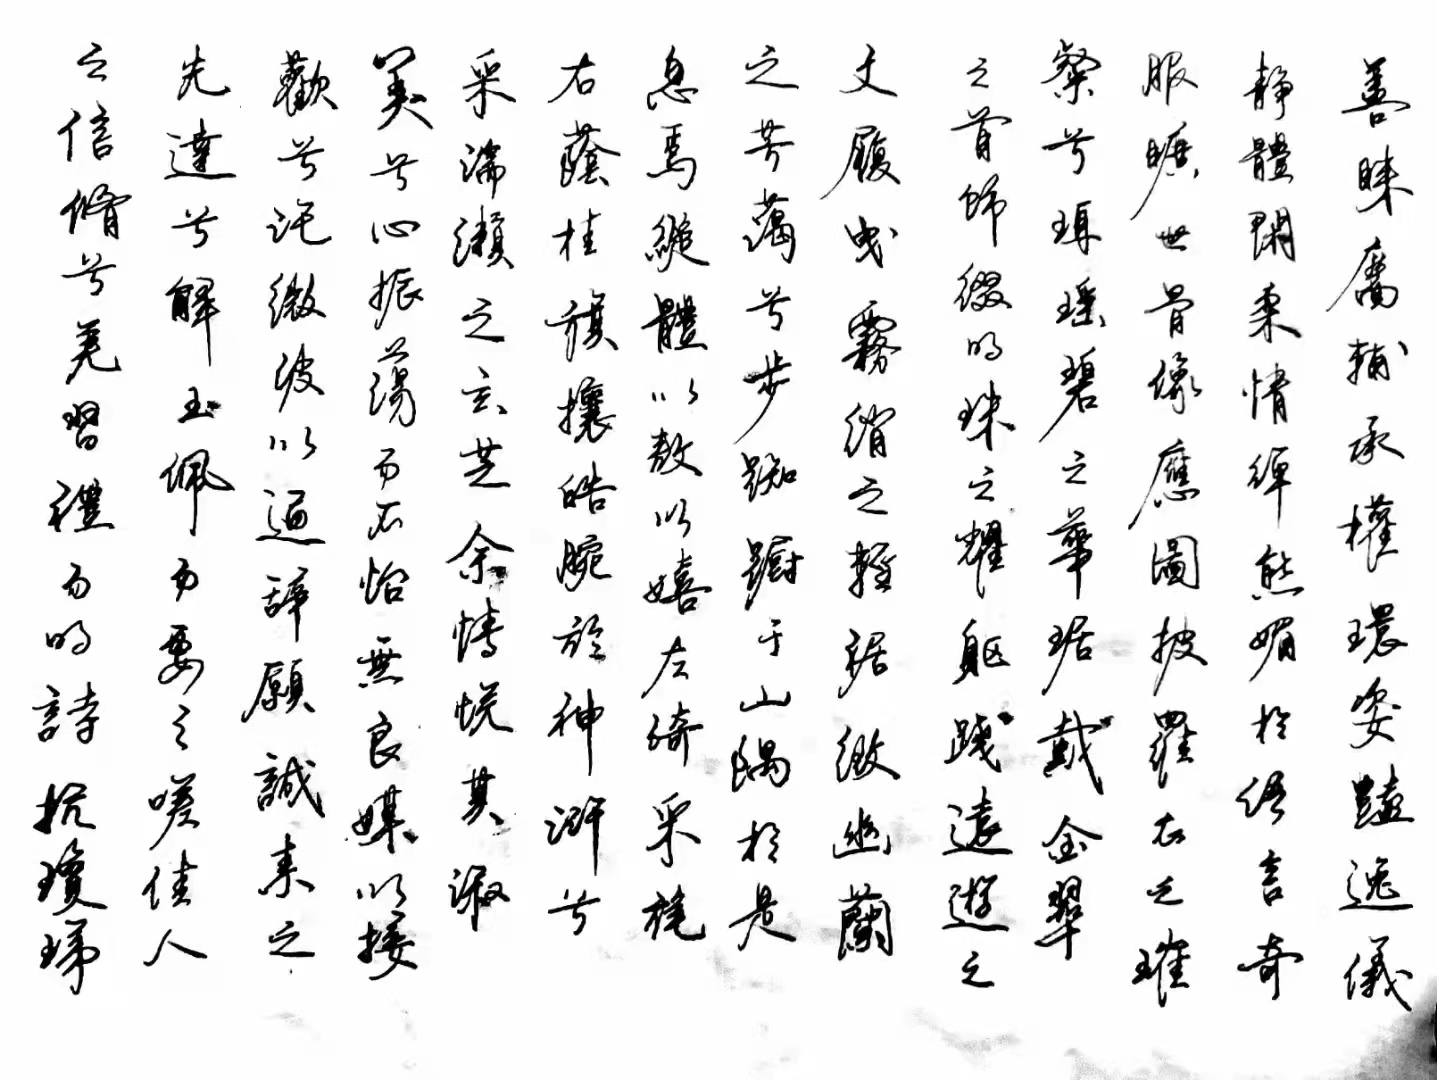 善睞靨輔承權環姿豔逸儀
靜體閑柔情綽態媚於語言奇
服曠世骨像應圖披羅衣之璀
粲兮珥瑤碧之華琚戴金翠
之首飾綴明珠之耀軀踐遠遊之
文履曳霧綃之輕裾微幽蘭
之芳藹兮步踟躕于山隅於是
忽焉縱體以敖以嬉左倚采旄
右蔭桂旗攘皓腕於神滸兮
采湍瀨之玄芝余情悅其淑
美兮心振蕩而不怡無良媒以接
歡兮託微波以通辭願誠素之
先達兮解玉佩而要之嗟佳人
之信脩兮羌習禮而明詩抗瓊珶